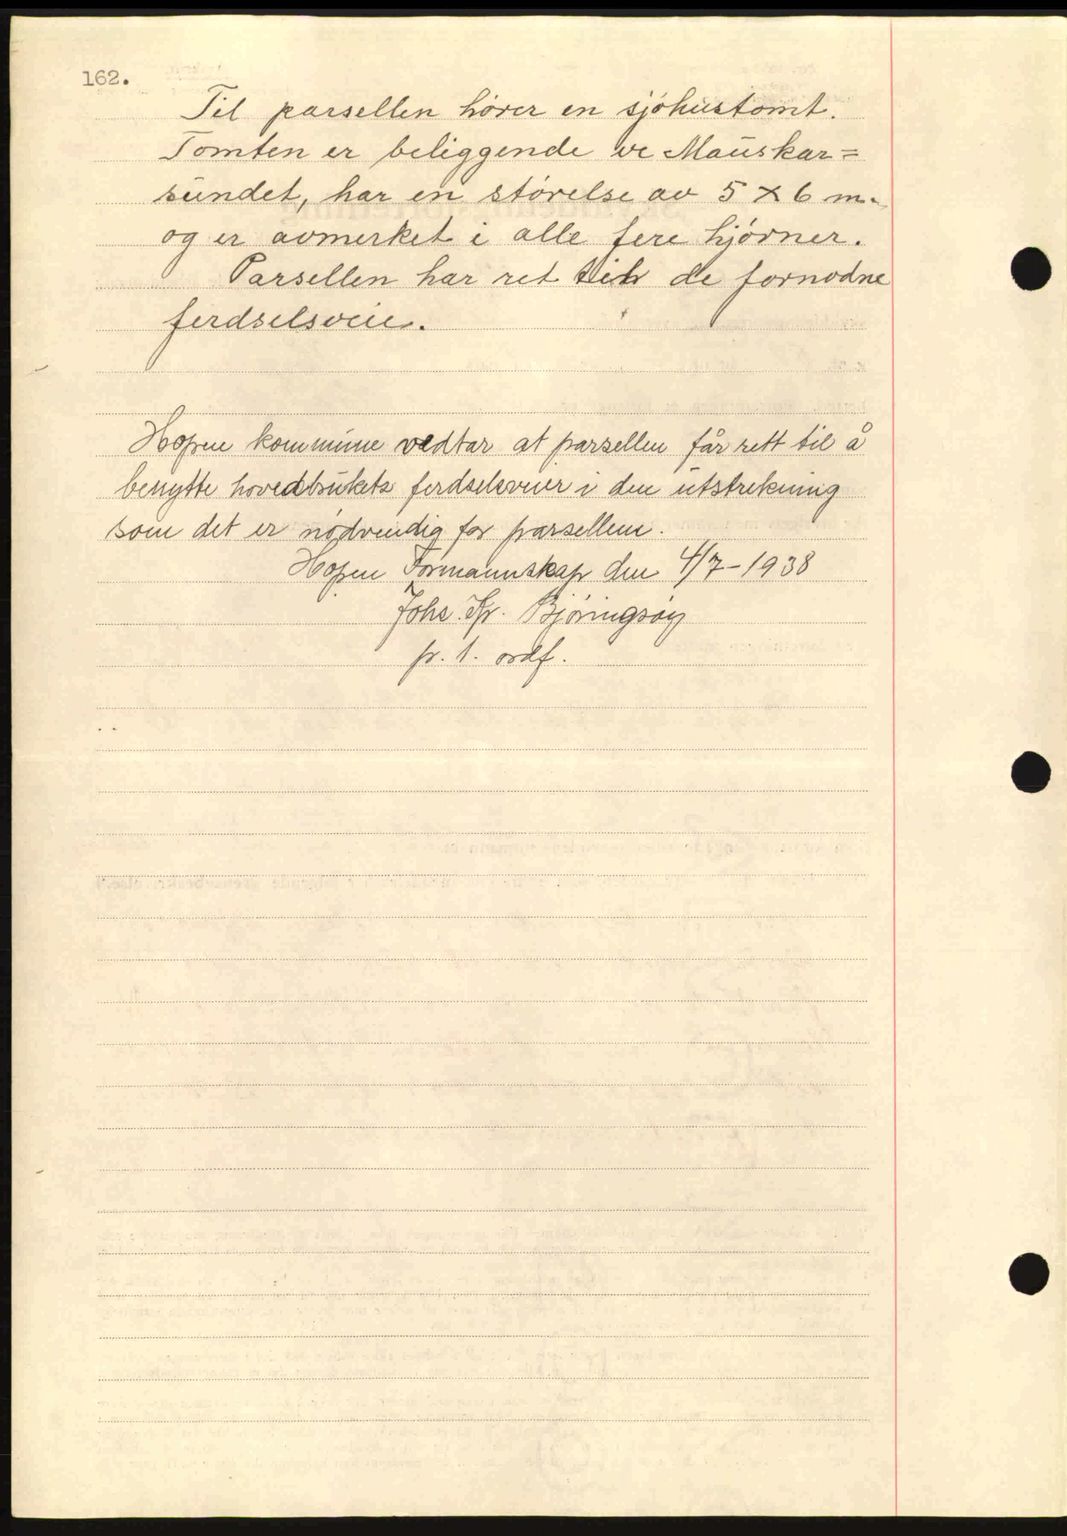 162.
Til parsellen hører en sjøhustomt.
Tomten er beliggende ve Mauskar=
sundet, har en størelse av 5 x 6 m.
og er avmerket i alle fere hjørner.
Parsellen har ret til de fornødne
ferdselsveie.
Hopen kommune vedtar at parsellen får rett til å
benytte hovedbrukets ferdselsveier i den utstrekning
som det er nødvendig for parsellen.
Hopen Formannskap den 4/7-1938
Johs. Kr. Bjøringsøy
p. t. ordf.